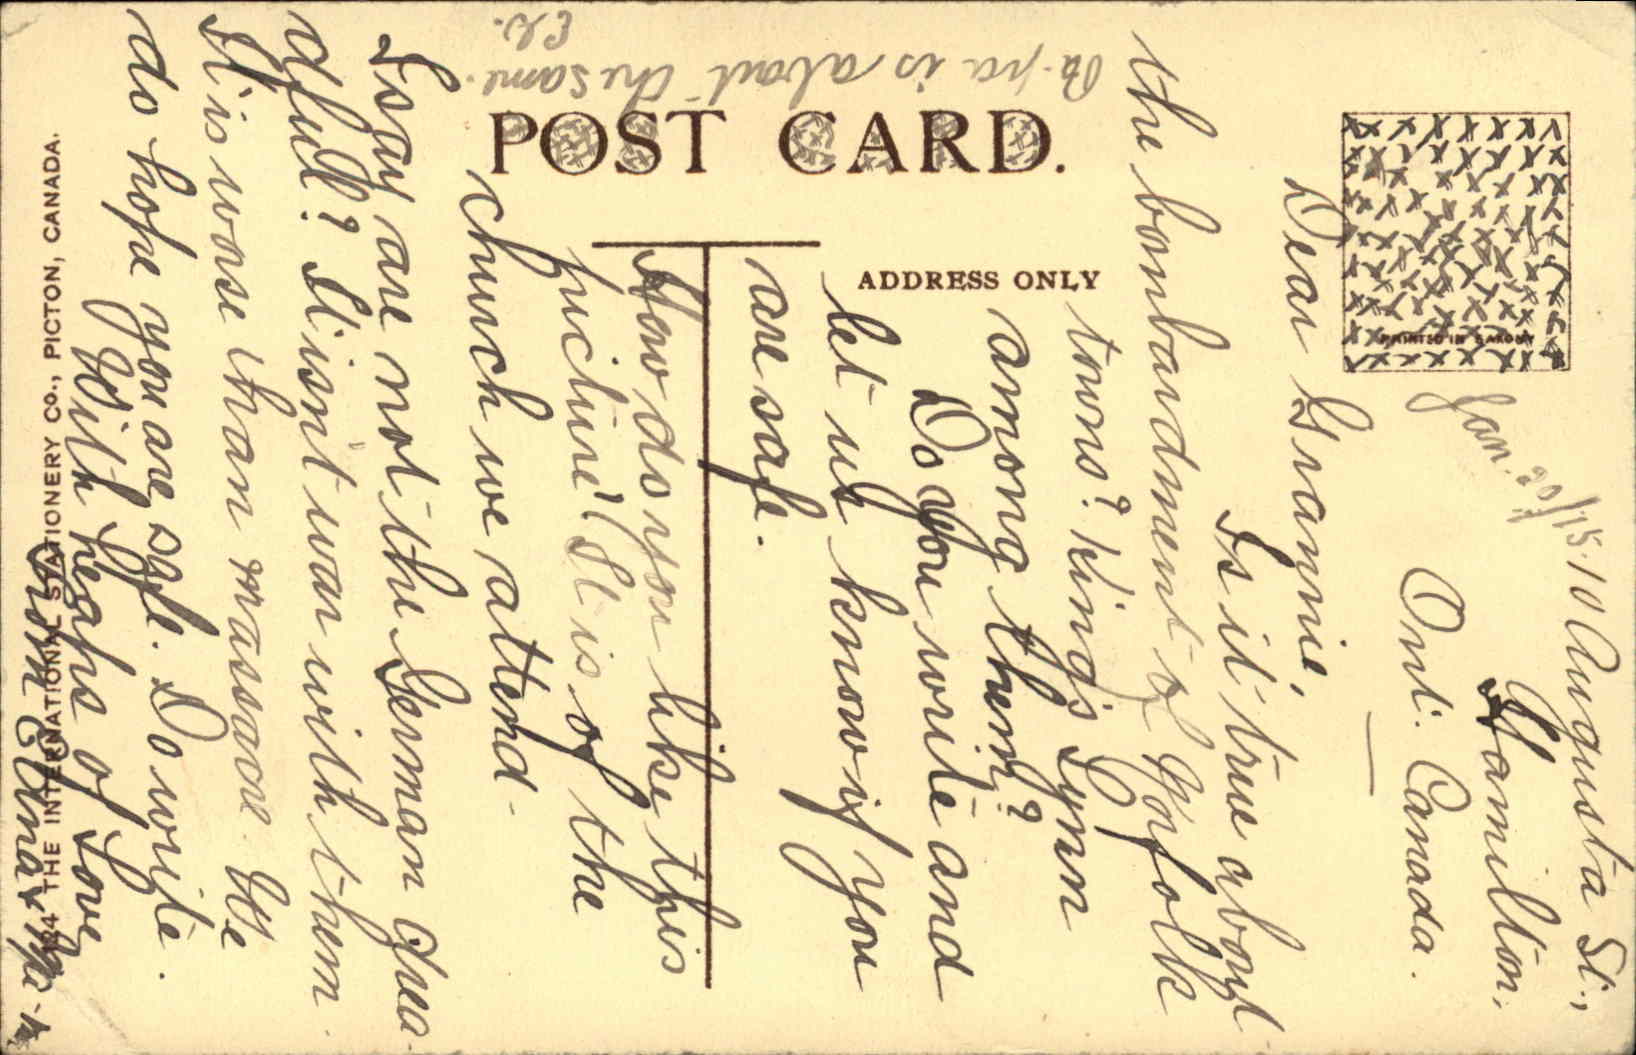 POST CARD.
ADDRESS ONLY
PRINTED IN SAXONY
124 THE INTERNATIONAL STATIONERY Co., PICTON, CANADA.
Jan. 20/15.
10 Augusta St.,
Hamilton,
Ont. Canada.
Dear Grannie,
Is it true about
the bombardment of Norfolk
towns? King's Lynn
among them?
Do you write and
let us know if you
are safe.
How do you like this
picture? It is of the
church we attend.
I say are not the Germans
Afull? It isn't war with them.
It is worse than massacre. We
do hope you are safe. Do write.
With heaps of love
from Edna
Pa-pa is about the same.